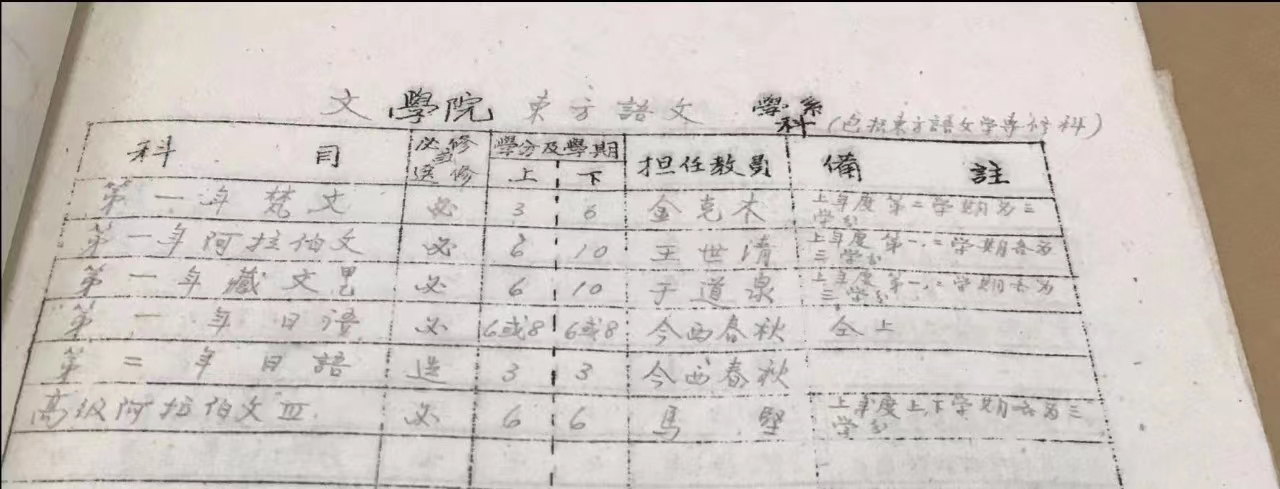 文學院 東方語文 學系科 (包括東方語文学專修科)
科目 必修或選修 學分及學期 上 下 担任教員 備註
第一年梵文 必 3 6 金克木 上年度第二学期為三学分
第一年阿拉伯文 必 6 10 王世清 上年度第一、二学期各為三学分
第一年藏文 必 6 10 于道泉 上年度第一、二学期各為三学分
第一年日語 必 6或8 6或8 今西春秋 仝上
第二年日語 选 3 3 今西春秋
高级阿拉伯文III 必 6 6 馬堅 上年度上下学期各為三学分